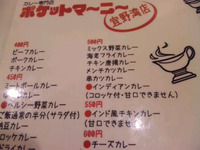 カレー専門店
ポケットマーニー
宜野湾店
400円
ビーフカレー
ポークカレー
チキンカレー
450円
ミートボールカレー
ヘルシー野菜カレー
ご飯通常の半分(サラダ付)
納豆カレー
コロッケカレー
500円
ミックス野菜カレー
海鮮フライカレー
チキン唐揚カレー
メンチカツカレー
串カツカレー
●インディアンカレー
(コロッケ付・甘口できません)
550円
●インド風チキンカレー
(甘口できません)
600円
●チーズカレー